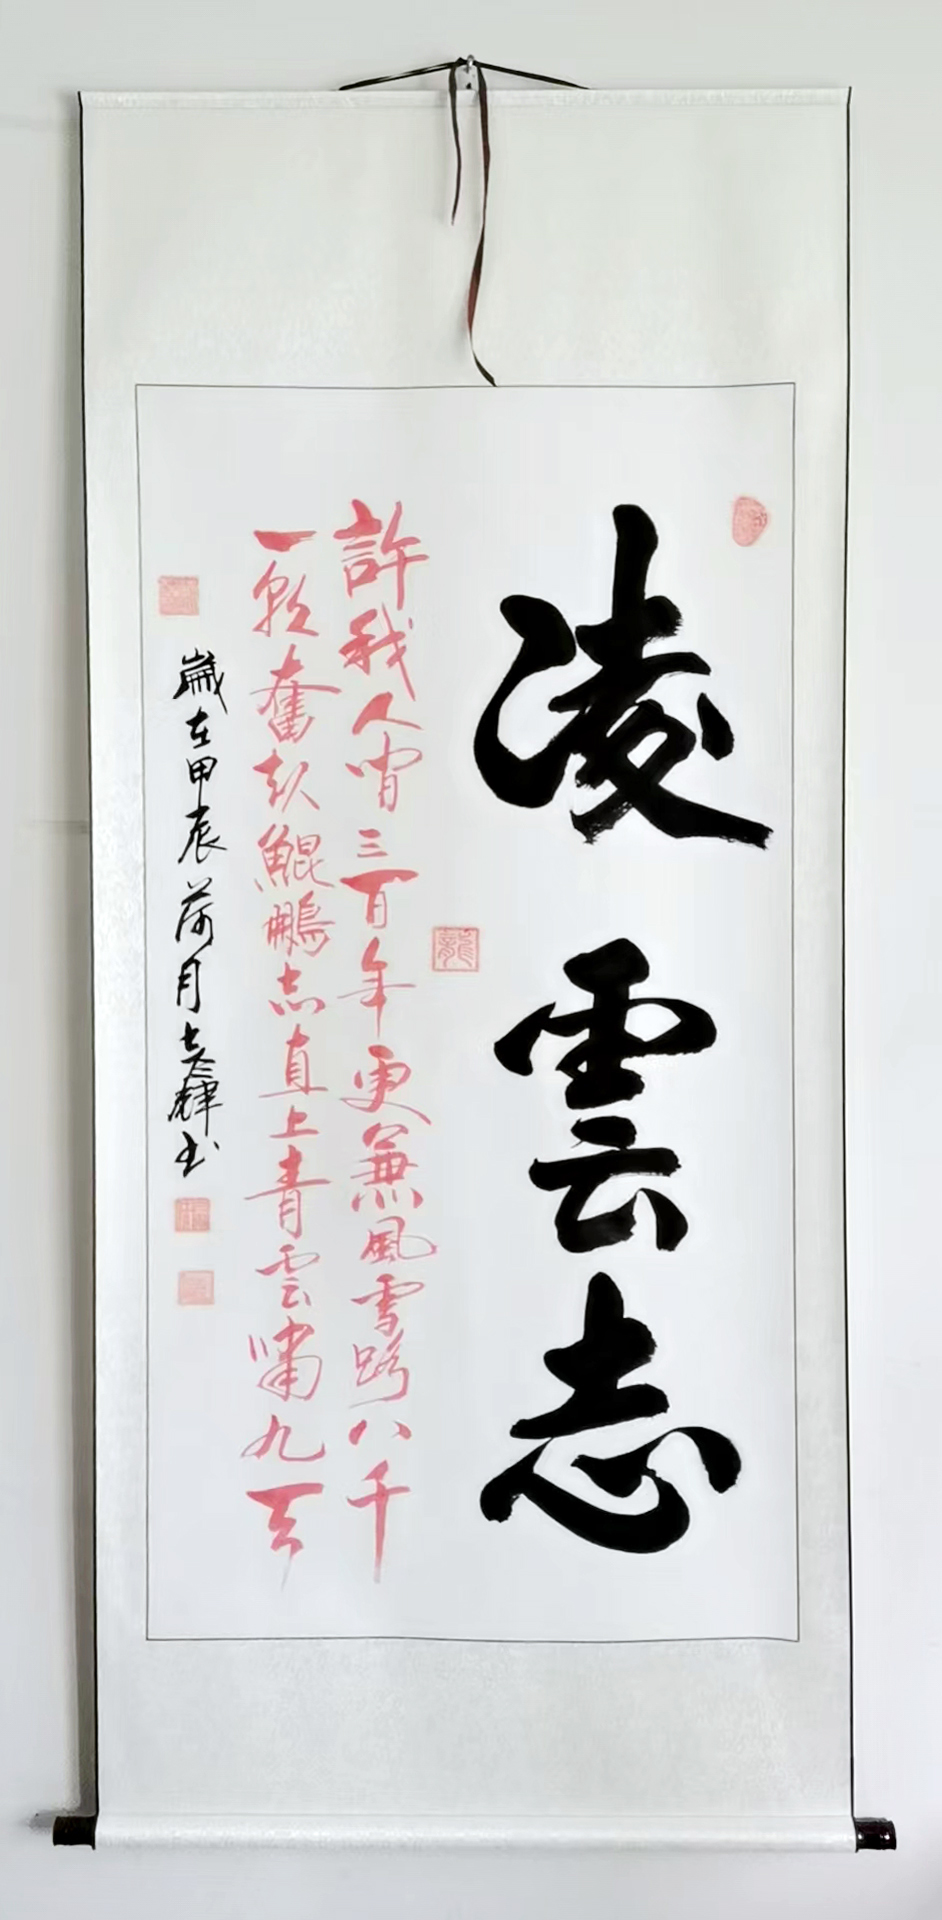 凌雲志
許我人间三百年更兼風雪路八千
一朝奮起鯤鵬志直上青雲嘯九天
龍
歲在甲辰荷月 輝书